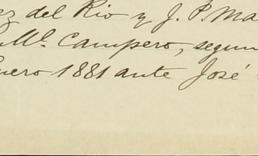 ez del Rio y J. P. Ma
Ml. Campero, segun
nero 1881 ante José